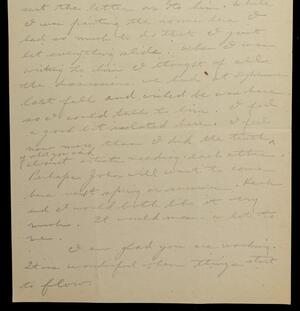 sent the letter on to him. While
I was painting the                I
had so much to do that I just
let everything slide. When I was
writing to him I thought of all
the discussions we had at
last fall and wished he was here
so I could talk to him. I feel
a good bit isolated here. I feel
now more, than I did the truth
of what you said
almost       needing each other.
Perhaps John will want to come
here next spring or summer.
and I would both like it very
much. It would mean a lot to
me.
I am glad you are working.
It is wonderful when things start
to flow.